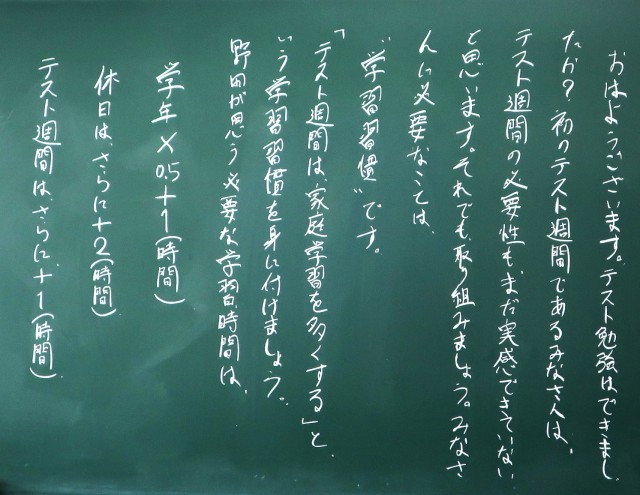 おはようございます。テスト勉強はできまし
たか？初のテスト週間であるみなさんは、
テスト週間の必要性も、まだ実感できていない
と思います。それでも、取り組みましょう。みなさ
んに必要なことは、
"学習習慣"です。
「テスト週間は、家庭学習を多くする」と
いう学習習慣を身に付けましょう。
野田が思う必要な学習時間は、
学年×0.5+1(時間)
休日は、さらに+2(時間)
テスト週間は、さらに、+1(時間)